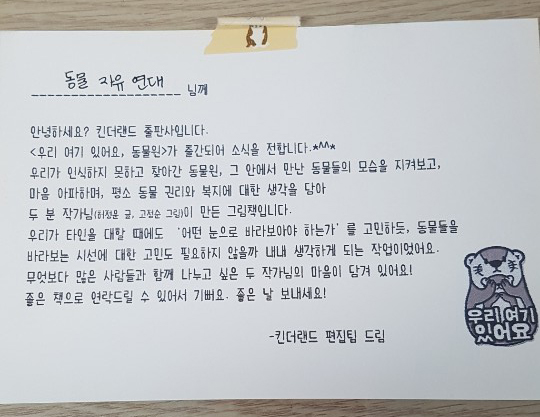 동물 자유 연대 님께
안녕하세요? 킨더랜드 출판사입니다.
<우리 여기 있어요, 동물원>가 출간되어 소식을 전합니다.*^^*
우리가 인식하지 못하고 찾아간 동물원, 그 안에서 만난 동물들의 모습을 지켜보고,
마음 아파하며, 평소 동물 권리와 복지에 대한 생각을 담아
두 분 작가님(허정윤 글, 고정순 그림)이 만든 그림책입니다.
우리가 타인을 대할 때에도 '어떤 눈으로 바라보아야 하는가'를 고민하듯, 동물들을
바라보는 시선에 대한 고민도 필요하지 않을까 내내 생각하게 되는 작업이었어요.
무엇보다 많은 사람들과 함께 나누고 싶은 두 작가님의 마음이 담겨 있어요!
좋은 책으로 연락드릴 수 있어서 기뻐요. 좋은 날 보내세요!
-킨더랜드 편집팀 드림
우리 여기
있어요